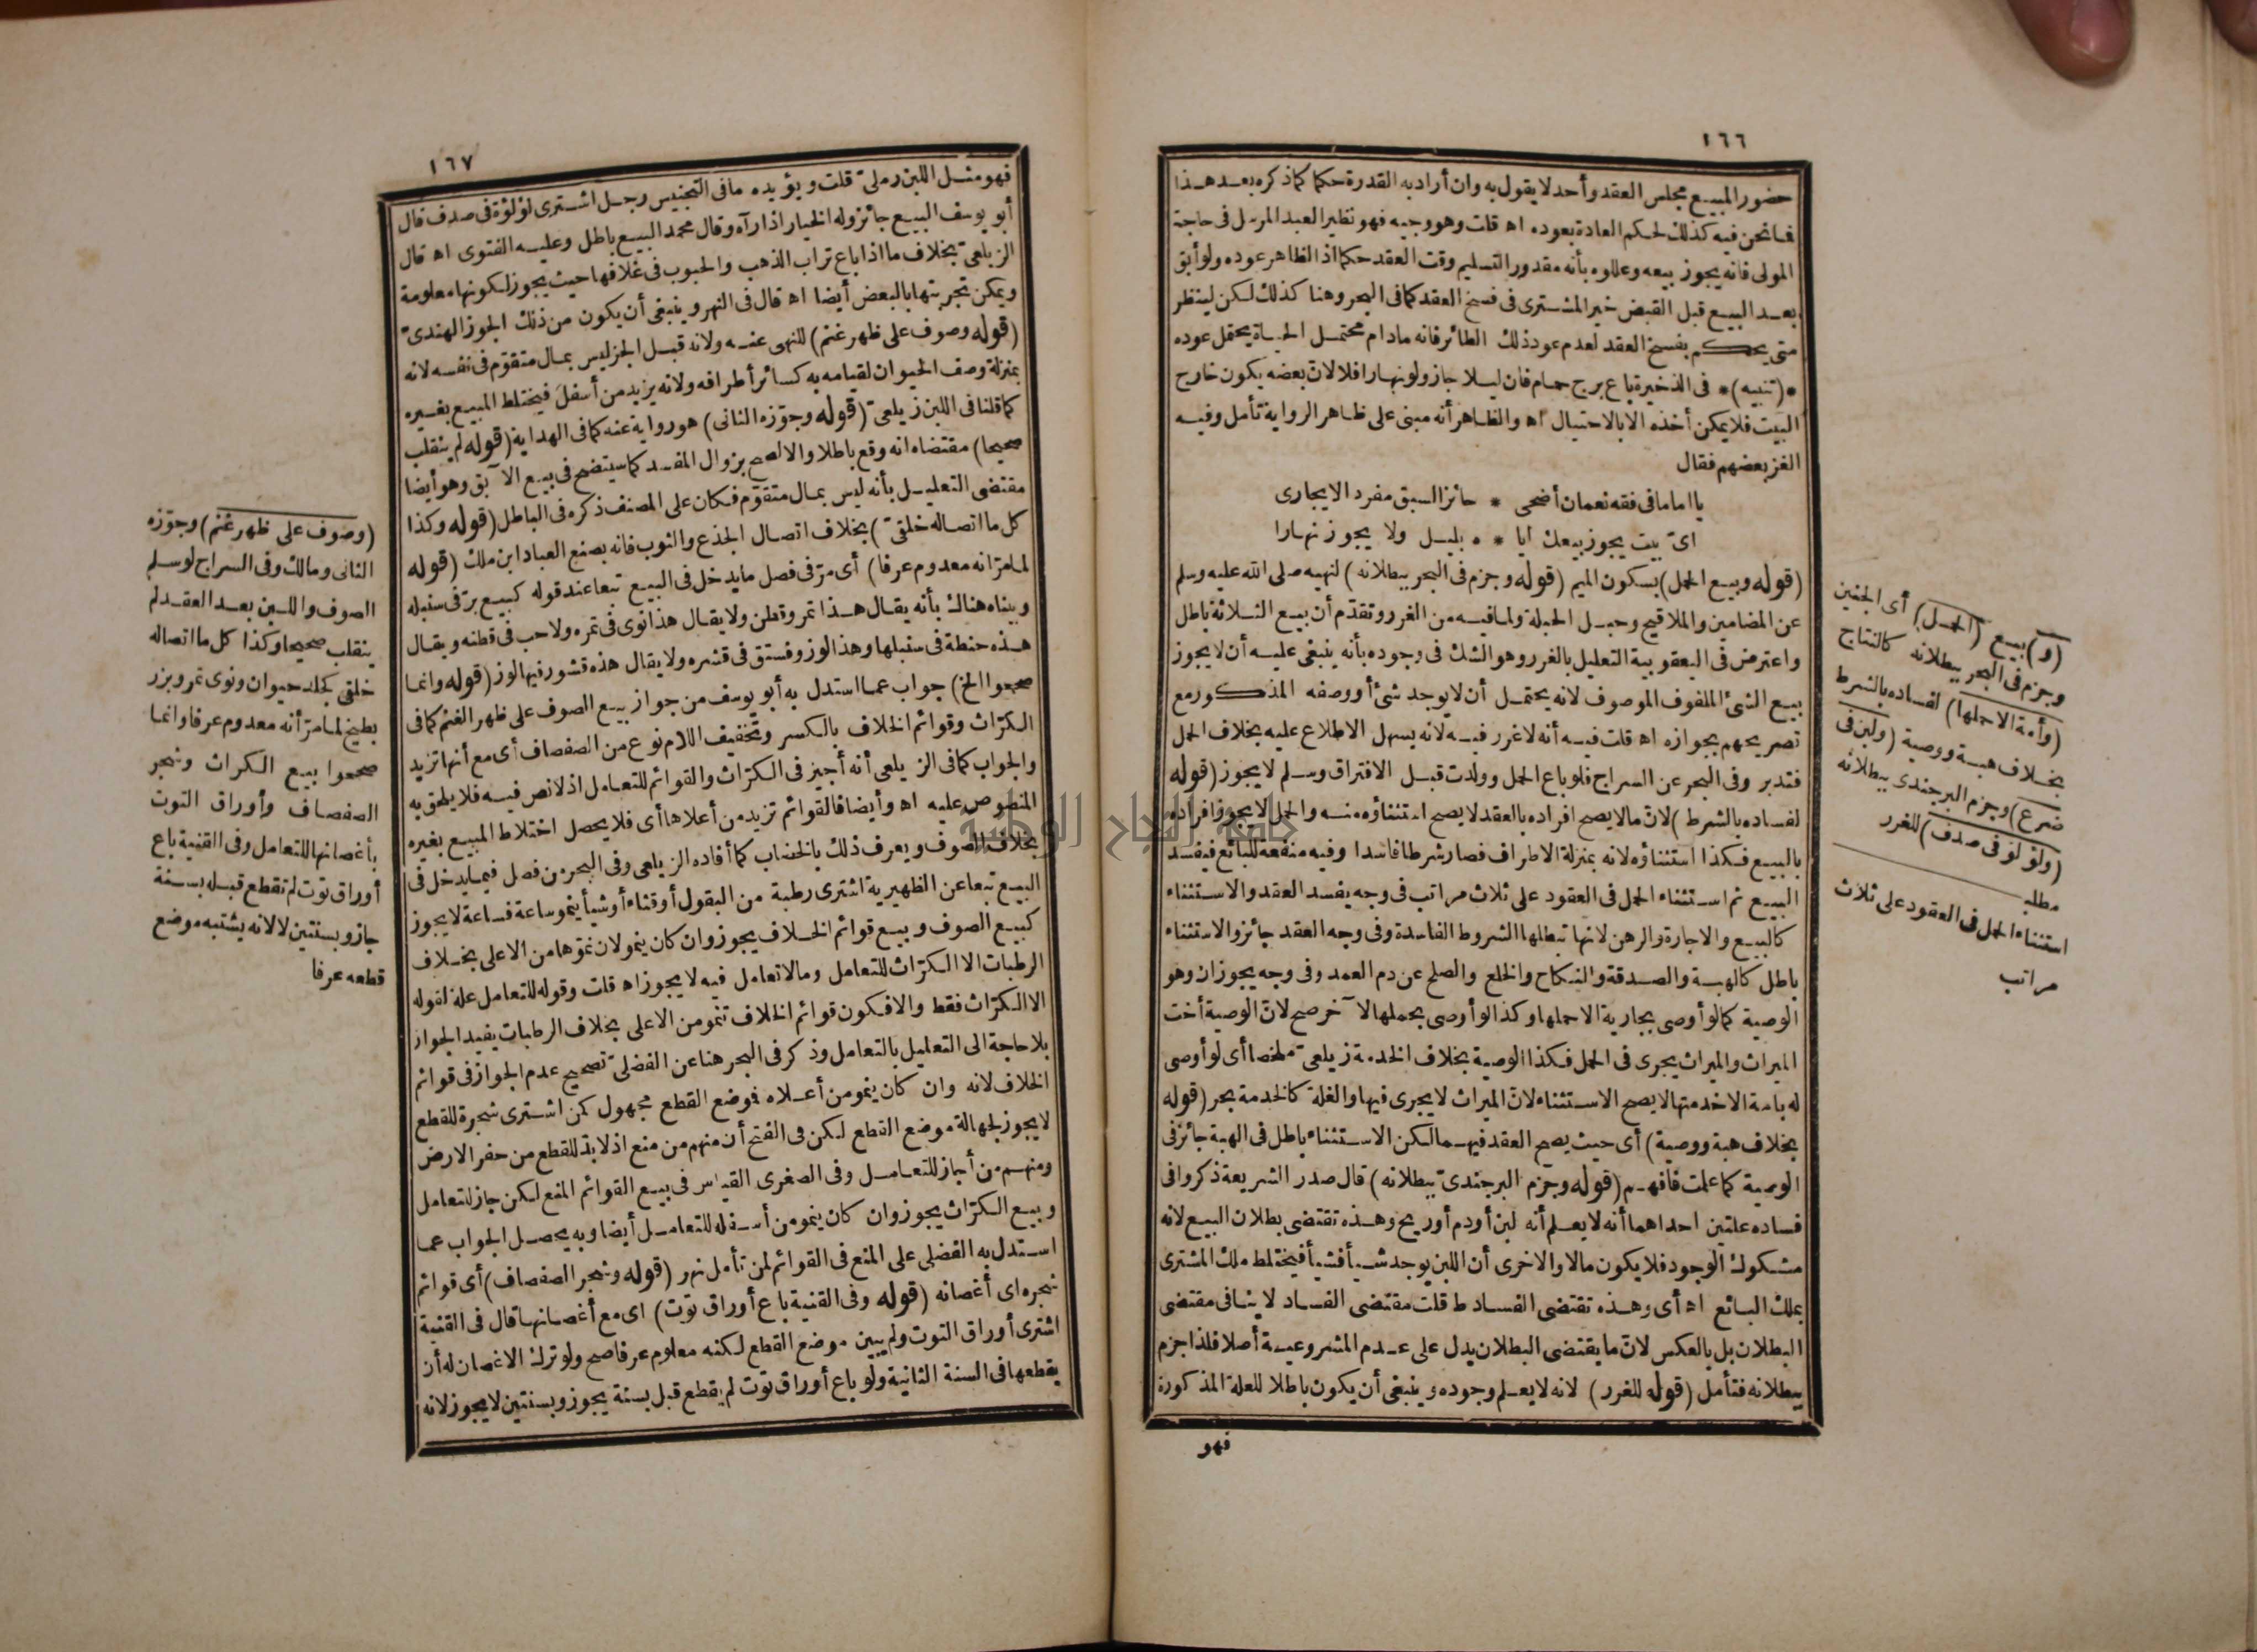 ١٦٦
حضور المبيع مجلس العقد وأحد لا يقول به وان أراد به القدرة حكما كما ذكره بعد هذا
فما نحن فيه كذلك لحكم العادة بعوده اه قلت وهو وجيه فهو نظير العبد المرسل فى حاجة
المولى فانه يجوز بيعه وعللوه بأنه مقدور التسليم وقت العقد حكما اذ الظاهر عوده ولو أبق
بعد البيع قبل القبض خير المشترى فى فسخ العقد كما فى البحر وهنا كذلك لكن لينظر
متى يحكم بفسخ العقد لعدم عود ذلك الطائر فانه مادام محتمل الحياة يحتمل عوده
*(تنبيه)* فى الذخيرة باع برج حمام فان ليلا جاز ولو نهارا فلا لان بعضه يكون خارج
البيت فلا يمكن أخذه الا بالاحتيال اه والظاهر أنه مبنى على ظاهر الرواية تأمل وفيه
الغز بعضهم فقال
يا اماما فى فقه نعمان أضحى * حائز السبق مفرد الايجارى
اىّ بيت يجوز بيعك ايا * ه بليل ولا يجوز نهارا
(قوله وبيع الحمل) بسكون الميم (قوله وجزم فى البحر ببطلانه) لنهيه صلى الله عليه وسلم
عن المضامين والملاقيح وحبل الحبلة ولما فيه من الغرر وتقدّم أن بيع الثلاثة باطل
واعترض فى اليعقوبية التعليل بالغرر وهو الشك فى وجوده بأنه ينبغى عليه أن لا يجوز
بيع الشئ الملفوف الموصوف لانه يحتمل أن لا يوجد شئ أو وصفه المذكور مع
تصريحهم بجوازه اه قلت فيه أنه لا غرر فيه لانه يسهل الاطلاع عليه بخلاف الحمل
فتدبر وفى البحر عن السراج فلو باع الحمل وولدت قبل الافتراق وسلم لا يجوز (قوله
لفساده بالشرط) لانّ ما لا يصح افراده بالعقد لا يصح استثناؤه منه والحمل لا يجوز افراده
بالبيع فكذا استثناؤه لانه بمنزلة الاطراف فصار شرطا فاسدا وفيه منفعة للبائع فيفسد
البيع ثم استثناء الحمل فى العقود على ثلاث مراتب فى وجه يفسد العقد والاستثناء
كالبيع والاجارة والرهن لانها تبطلها الشروط الفاسدة وفى وجه العقد جائز والاستثناء
باطل كالهبة والصدقة والنكاح والخلع والصلح عن دم العمد وفى وجه يجوزان وهو
الوصية كما لو أوصى بجارية الا حملها وكذا لو أوصى بحملها لآخر صح لانّ الوصية أخت
الميراث والميراث يجرى فى الحمل فكذا الوصية بخلاف الخدمة زيلعىّ ملخصا أى لو أوصى
له بامة الا خدمتها لا يصح الاستثناء لانّ الميراث لا يجرى فيها والغلة كالخدمة بحر (قوله
بخلاف هبة ووصية) أى حيث يصح العقد فيهما لكن الاستثناء باطل فى الهبة جائز فى
الوصية كما علمت فافهم (قوله وجزم البرجندىّ ببطلانه) قال صدر الشريعة ذكروا فى
فساده علتين احداهما أنه لا يعلم أنه لبن أو دم أو ريح وهذه تقتضى بطلان البيع لانه
مشكوك الوجود فلا يكون مالا والاخرى أن اللبن يوجد شيأ فشيأ فيختلط ملك المشترى
بملك البائع اه أى وهذه تقتضى الفساد ط قلت مقتضى الفساد لا ينافى مقتضى
البطلان بل بالعكس لانّ ما يقتضى البطلان يدل على عدم المشروعية أصلا فلذا جزم
ببطلانه فتأمل (قوله للغرر) لانه لا يعلم وجوده وينبغى أن يكون باطلا للعلة المذكورة
فهو
(و) بيع (الحمل) أى الجنين
وجزم فى البحر ببطلانه كالنتاج
(وأمة الا حملها) لفساده بالشرط
بخلاف هبة ووصية (ولبن فى
ضرع) وجزم البرجندى ببطلانه
(ولؤلؤ فى صدف) للغرر
مطلب
استثناء الحمل فى العقود على ثلاث
مراتب
١٦٧
فهو مثل اللبن رملىّ قلت ويؤيده ما فى التجنيس رجل اشترى لؤلؤة فى صدف قال
أبو يوسف البيع جائز وله الخيار اذا رآه وقال محمد البيع باطل وعليه الفتوى اه قال
الزيلعىّ بخلاف ما اذا باع تراب الذهب والحبوب فى غلافها حيث يجوز لكونها معلومة
ويمكن تجربتها بالبعض أيضا اه قال فى النهر وينبغى أن يكون من ذلك الجوز الهندىّ
(قوله وصوف على ظهر غنم) للنهى عنه ولانه قبل الجز ليس بمال متقوّم فى نفسه لانه
بمنزلة وصف الحيوان لقيامه به كسائر أطرافه ولانه يزيد من أسفل فيختلط المبيع بغيره
كما قلنا فى اللبن زيلعىّ (قوله وجوّزه الثانى) هو رواية عنه كما فى الهداية (قوله لم ينقلب
صحيحا) مقتضاه انه وقع باطلا والا لصح بزوال المفسد كما سيتضح فى بيع الآبق وهو أيضا
مقتضى التعليل بأنه ليس بمال متقوّم فكان على المصنف ذكره فى الباطل (قوله وكذا
كل ما اتصاله خلقىّ) بخلاف اتصال الجذع والثوب فانه بصنع العباد ابن ملك (قوله
لما مرّ انه معدوم عرفا) أى مرّ فى فصل ما يدخل فى البيع تبعا عند قوله كبيع برّ فى سنبله
وبيناه هناك بأنه يقال هذا تمر وقطن ولا يقال هذا نوى فى تمره ولا حب فى قطنه ويقال
هذه حنطة فى سنبلها وهذا لوز وفستق فى قشره ولا يقال هذه قشور فيها لوز (قوله وانما
صححوا الخ) جواب عما استدل به أبو يوسف من جواز بيع الصوف على ظهر الغنم كما فى
الكرّاث وقوائم الخلاف بالكسر وتخفيف اللام نوع من الصفصاف أى مع أنها تزيد
والجواب كما فى الزيلعى أنه أجيز فى الكرّاث والقوائم للتعامل اذ لا نص فيه فلا يلحق به
المنصوص عليه اه وأيضا فالقوائم تزيد من أعلاها أى فلا يحصل اختلاط المبيع بغيره
بخلاف الصوف ويعرف ذلك بالخضاب كما أفاده الزيلعى وفى البحر من فصل فيما يدخل فى
البيع تبعا عن الظهيرية اشترى رطبة من البقول أو قثاء أو شيأ ينمو ساعة فساعة لا يجوز
كبيع الصوف وبيع قوائم الخلاف يجوز وان كان ينمو لان نموّها من الاعلى بخلاف
الرطبات الا الكرّاث للتعامل وما لا تعامل فيه لا يجوز اه قلت وقوله للتعامل علة لقوله
الا الكرّاث فقط والا فكون قوائم الخلاف تنمو من الاعلى بخلاف الرطبات يفيد الجواز
بلا حاجة الى التعليل بالتعامل وذكر فى البحر هنا عن الفضلىّ تصحيح عدم الجواز فى قوائم
الخلاف لانه وان كان ينمو من أعلاه فموضع القطع مجهول كمن اشترى شجرة للقطع
لا يجوز لجهالة موضع القطع لكن فى الفتح أن منهم من منع اذ لا بدّ للقطع من حفر الارض
ومنهم من أجاز للتعامل وفى الصغرى القياس فى بيع القوائم المنع لكن جاز للتعامل
وبيع الكرّاث يجوز وان كان ينمو من أسفله للتعامل أيضا وبه يحصل الجواب عما
استدل به الفضلى على المنع فى القوائم لمن تأمل نهر (قوله وشجر الصفصاف) أى قوائم
شجره اى أغصانه (قوله وفى القنية باع أوراق توت) اى مع أغصانها قال فى القنية
اشترى أوراق التوت ولم يبين موضع القطع لكنه معلوم عرفا صح ولو ترك الاغصان له أن
يقطعها فى السنة الثانية ولو باع أوراق توت لم يقطع قبل بسنة يجوز وبسنتين لا يجوز لانه
(وصوف على ظهر غنم) وجوّزه
الثانى ومالك وفى السراج لو سلم
الصوف واللبن بعد العقد لم
ينقلب صحيحا وكذا كل ما اتصاله
خلقى كجلد حيوان ونوى تمر وبزر
بطيخ لما مرّ أنه معدوم عرفا وانما
صححوا بيع الكراث وشجر
الصفصاف وأوراق التوت
بأغصانها للتعامل وفى القنية باع
أوراق توت لم تقطع قبل بسنة
جاز وبسنتين لا لانه يشتبه موضع
قطعه عرفا
جامعة النجاح الوطنية